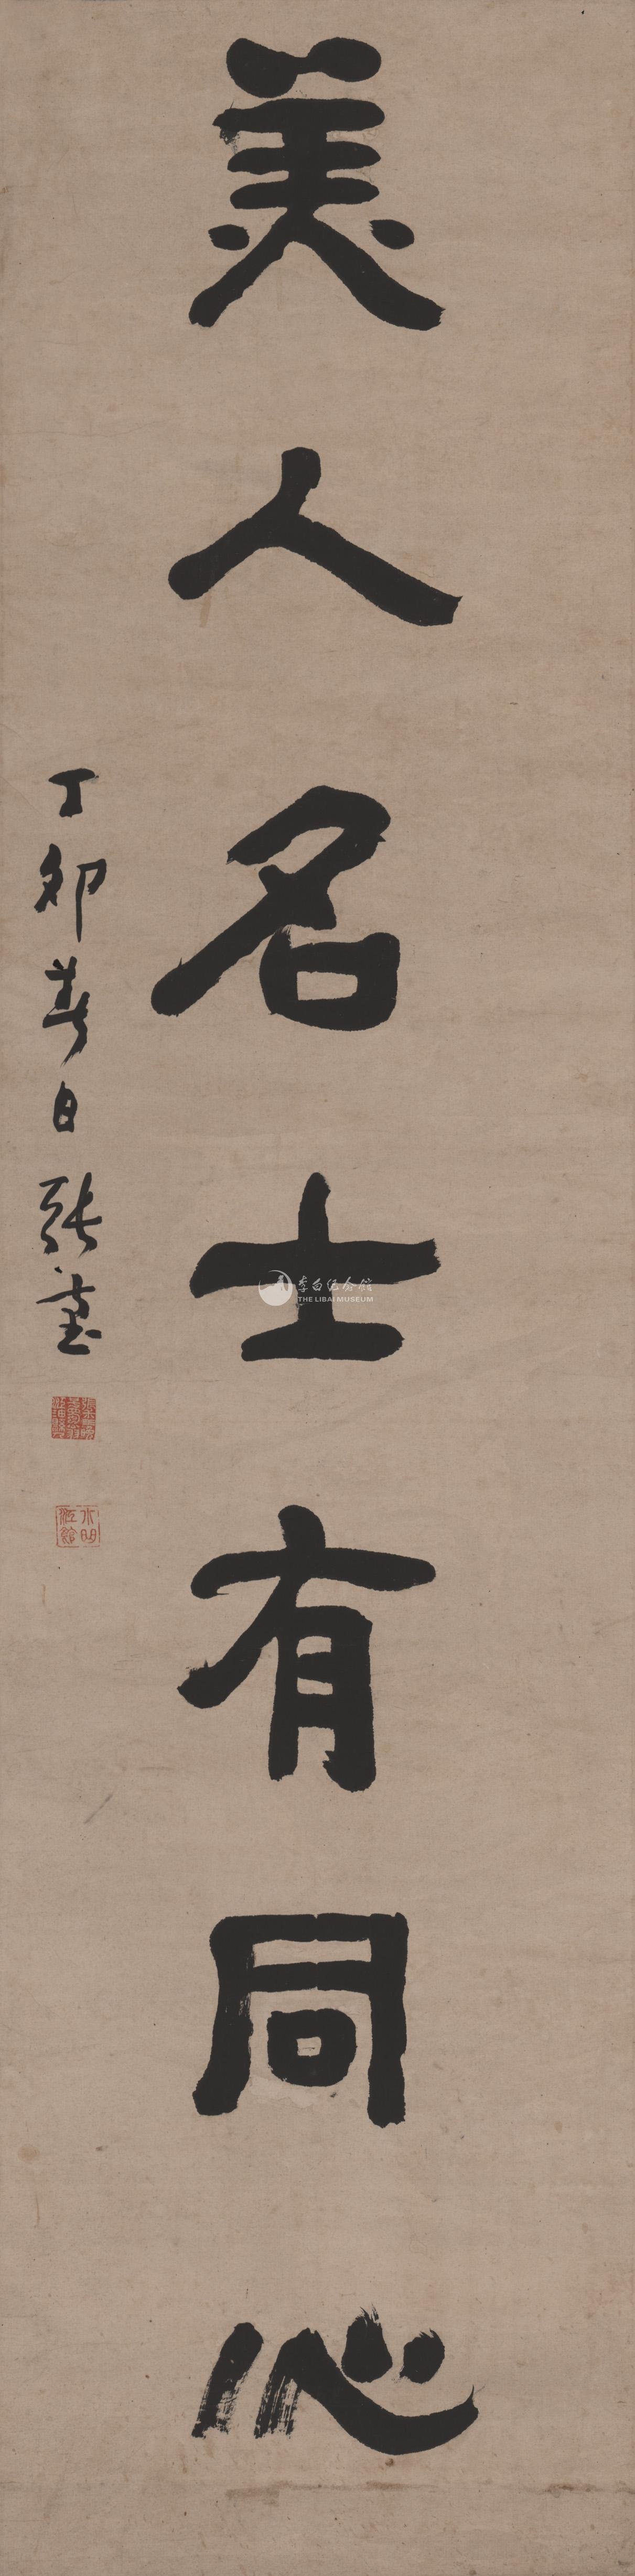 美人名士有同心
丁卯春日 張臺
李白纪念馆
THE LIBAI MUSEUM